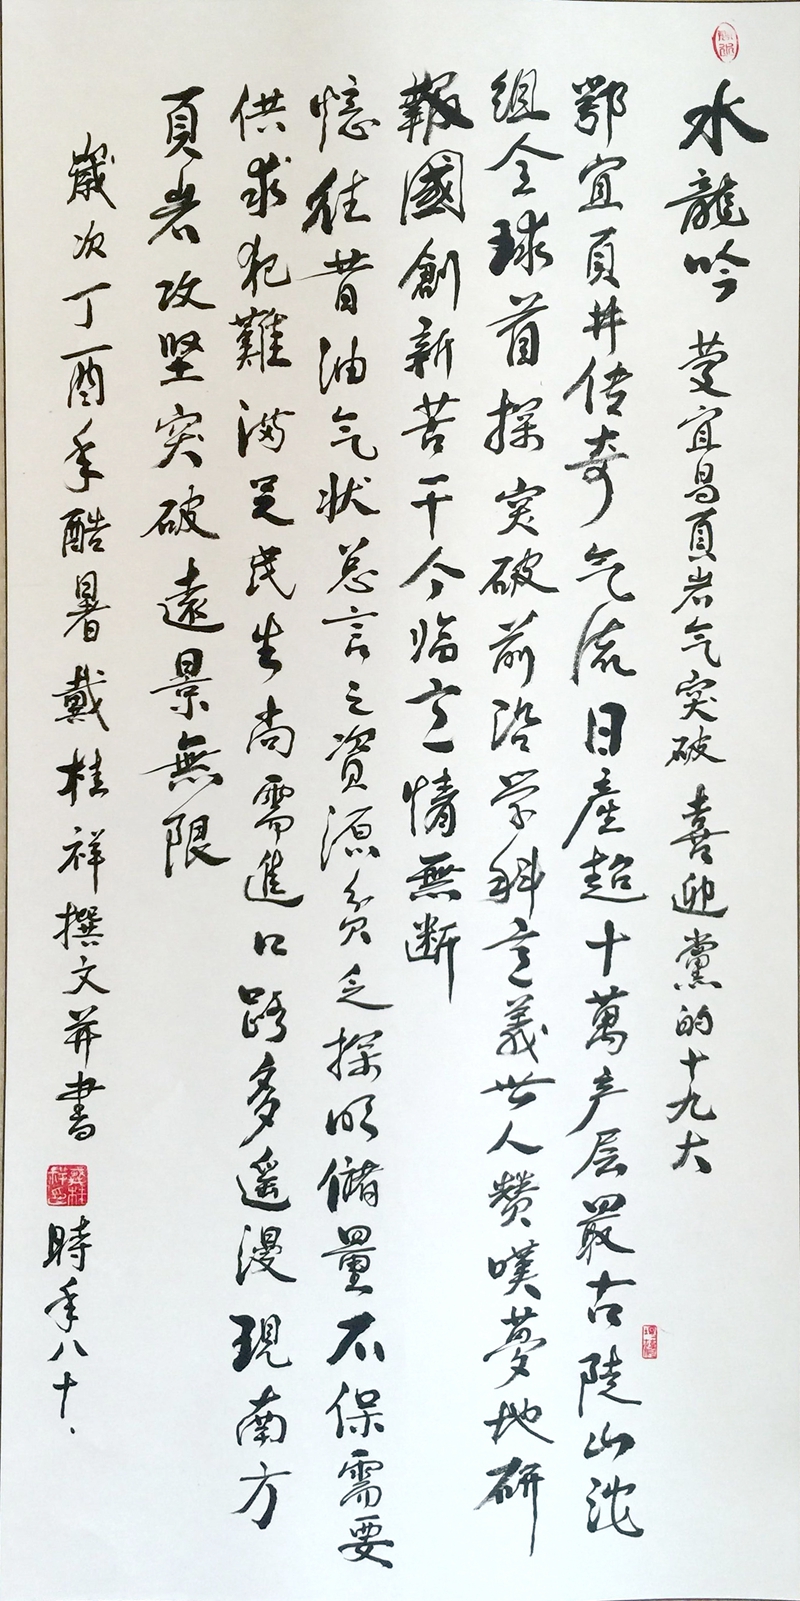 水龍吟 宜昌頁岩气突破 喜迎黨的十九大
鄂宜頁井传奇气流日產超十萬产层最古陡山沱
組全球首探突破前沿学科意義世人赞嘆梦地研
報國創新苦干今临意情無断
憶往昔油气状总言之資源贫乏探明儲量不保需要
供求犯難满足民生尚需進口路多遥漫現南方
頁岩攻坚突破遠景無限
歲次丁酉年酷暑戴桂祥撰文并書 時年八十